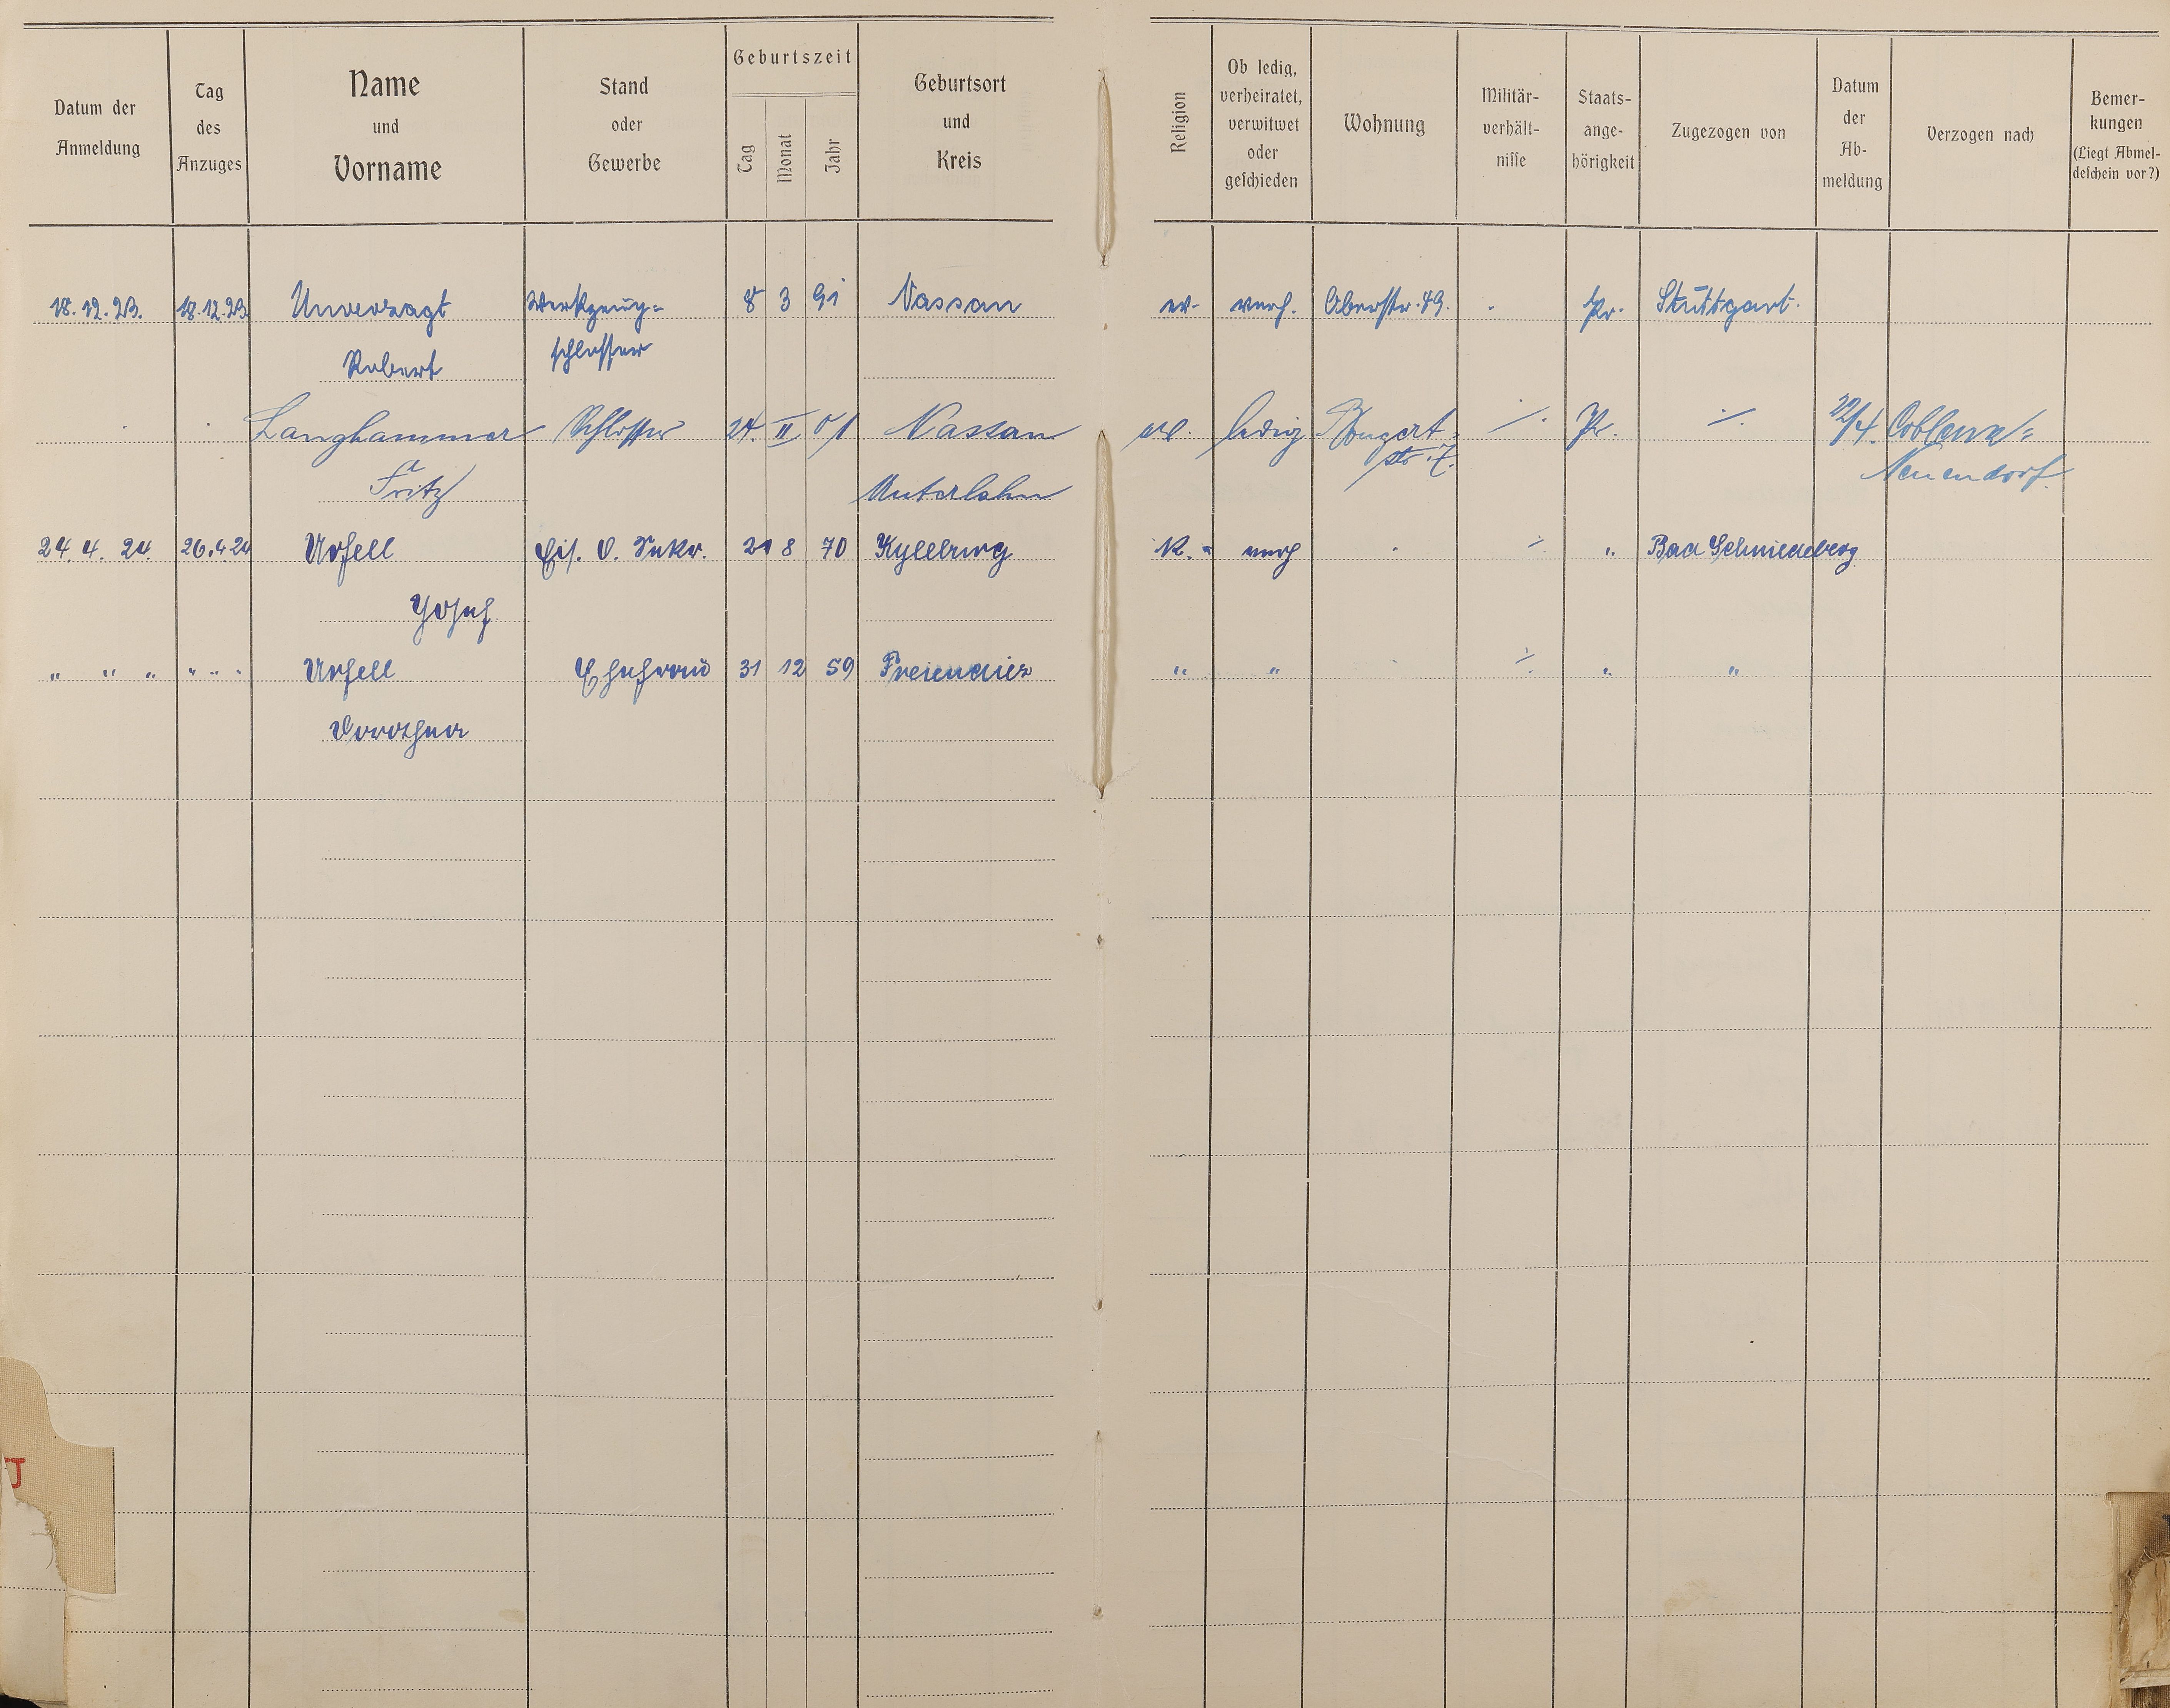 Datum der Anmeldung
Tag des Anzuges
Name und Vorname
Stand oder Gewerbe
Geburtszeit
Tag
Monat
Jahr
Geburtsort und Kreis
Religion
Ob ledig, verheiratet, verwitwet oder geschieden
Wohnung
Militär-verhält-nisse
Staats-ange-hörigkeit
Zugezogen von
Datum der Ab-meldung
Verzogen nach
Bemer-kungen
(Liegt Abmel-deschein vor?)
18.12.23. 18.12.23 Unverzagt Werkzeug= 8 3 91 Nassau ev. verh. Oberstr. 49. Pr. Stuttgart.
Robert schlosser
Langhammer Schlosser 24. II 01 Nassau ev. ledig Bongert= ⁒ Pr. ⁒ 22/4. Coblenz=
Fritz Unterlahn str. 7. Neuendorf.
24. 4. 24. 26.4.24 Urfell Eis. O. Sekr. 21 8 70 Kyllburg K. verh ⁒ " Bad Schmiedeberg
Josef
" " " " " " Urfell Ehefrau 31 12 59 Freiendiez " " ⁒ " "
Dorothea